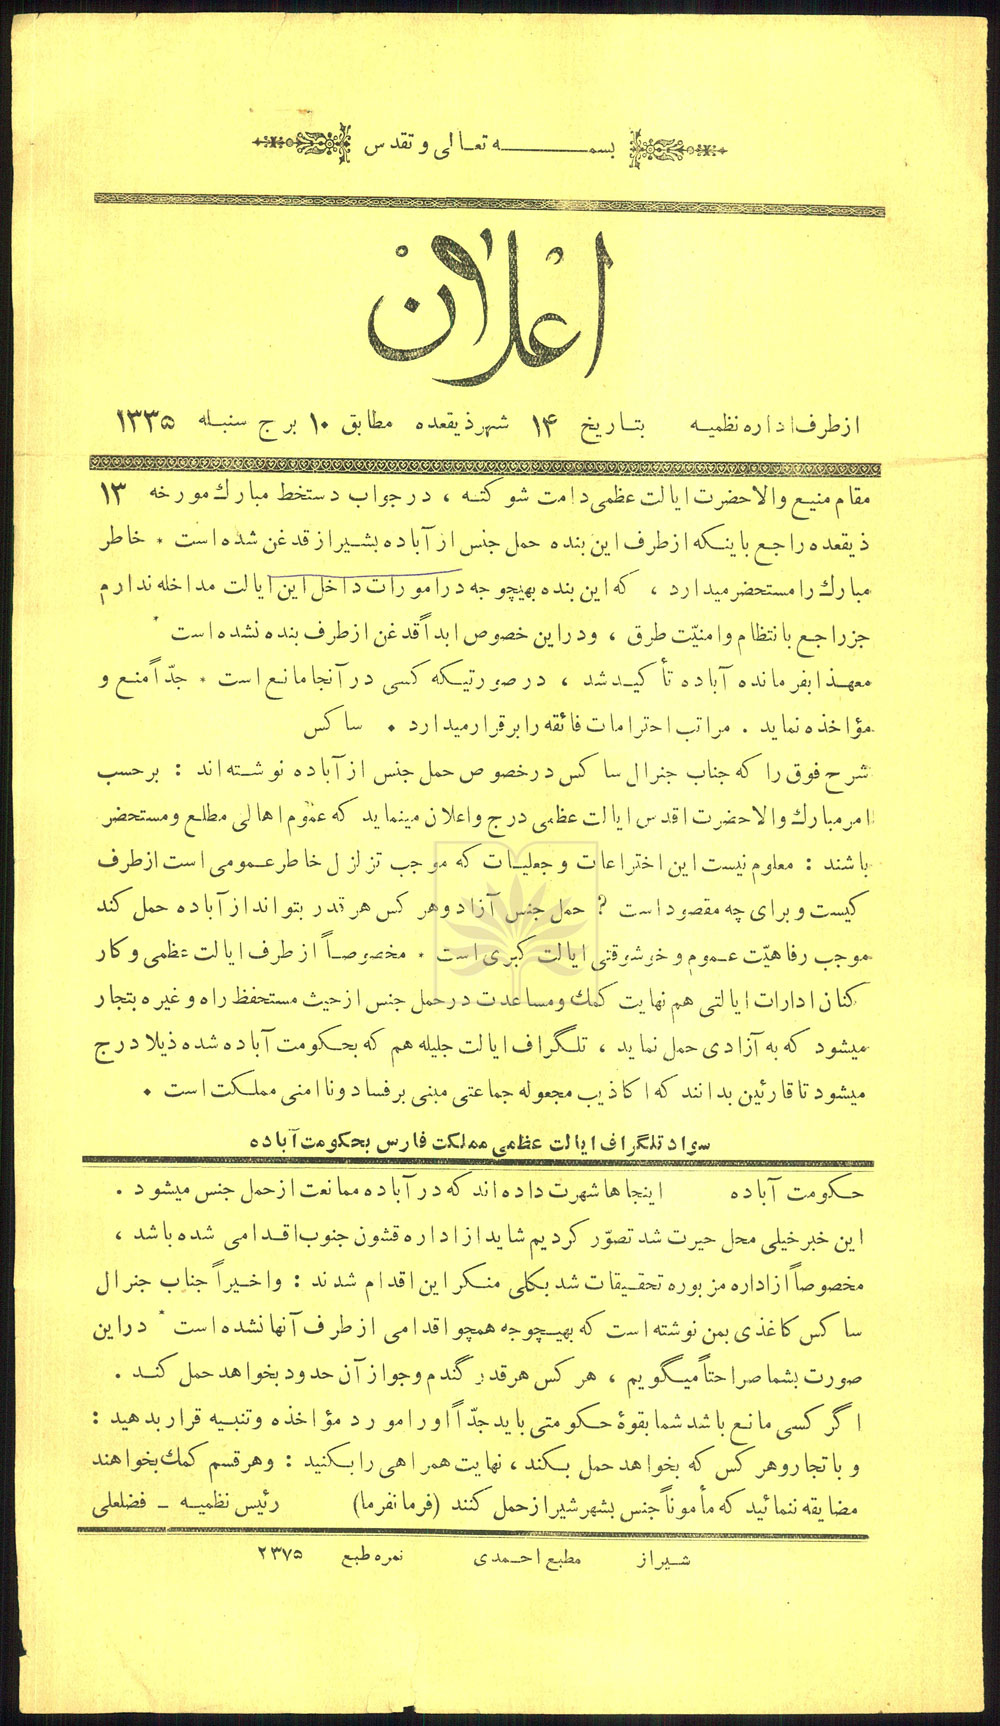 بسمه تعالی و تقدس
اعلان
از طرف اداره نظمیه بتاریخ ۱۴ شهر ذیقعده مطابق ۱۰ برج سنبله ۱۳۳۵
مقام منیع والاحضرت ایالت عظمی دامت شوکته ، در جواب دستخط مبارك مورخه ۱۳
ذیقعده راجع باینکه از طرف این بنده حمل جنس از آباده بشیراز قدغن شده است * خاطر
مبارك را مستحضر میدارد ، که این بنده بهیچوجه در امورات داخل این ایالت مداخله ندارم
جز راجع بانتظام و امنیّت طرق ، و در این خصوص ابداً قدغن از طرف بنده نشده است *
معهذا بفرمانده آباده تأکید شد ، در صورتیکه کسی در آنجا مانع است * جدّاً منع و
مؤاخذه نماید . مراتب احترامات فائقه را برقرار میدارد . ساکس
شرح فوق را که جناب جنرال ساکس در خصوص حمل جنس از آباده نوشته‌اند : بر حسب
امر مبارك والاحضرت اقدس ایالت عظمی درج و اعلان مینماید که عموم اهالی مطلع و مستحضر
باشند : معلوم نیست این اختراعات و جعلیات که موجب تزلزل خاطر عمومی است از طرف
کیست و برای چه مقصود است ؟ حمل جنس آزاد و هر کس هر قدر بتواند از آباده حمل کند
موجب رفاهیّت عموم و خوشوقتی ایالت کبری است * مخصوصاً از طرف ایالت عظمی و کار
کنان ادارات ایالتی هم نهایت کمك و مساعدت در حمل جنس از حیث مستحفظ راه و غیره بتجار
میشود که به آزادی حمل نماید ، تلگراف ایالت جلیله هم که بحکومت آباده شده ذیلا درج
میشود تا قارئین بدانند که اکاذیب مجعوله جماعتی مبنی بر فساد و ناامنی مملکت است .
سواد تلگراف ایالت عظمی مملکت فارس بحکومت آباده
حکومت آباده اینجاها شهرت داده‌اند که در آباده ممانعت از حمل جنس میشود .
این خبر خیلی محل حیرت شد تصوّر کردیم شاید از اداره قشون جنوب اقدامی شده باشد ،
مخصوصاً از اداره مزبوره تحقیقات شد بکلی منکر این اقدام شدند : و اخیراً جناب جنرال
ساکس کاغذی بمن نوشته است که بهیچوجه همچو اقدامی از طرف آنها نشده است * در این
صورت بشما صراحتاً میگویم ، هر کس هر قدر گندم و جو از آن حدود بخواهد حمل کند .
اگر کسی مانع باشد شما بقوهٔ حکومتی باید جدّاً او را مورد مؤاخذه و تنبیه قرار بدهید :
و با تجار و هر کس که بخواهد حمل بکند ، نهایت همراهی را بکنید : و هر قسم کمك بخواهند
مضایقه ننمائید که مأموناً جنس بشهر شیراز حمل کنند (فرمانفرما) رئیس نظمیه – فضلعلی
شیراز مطبع احمدی نمره طبع ۲۳۷۵